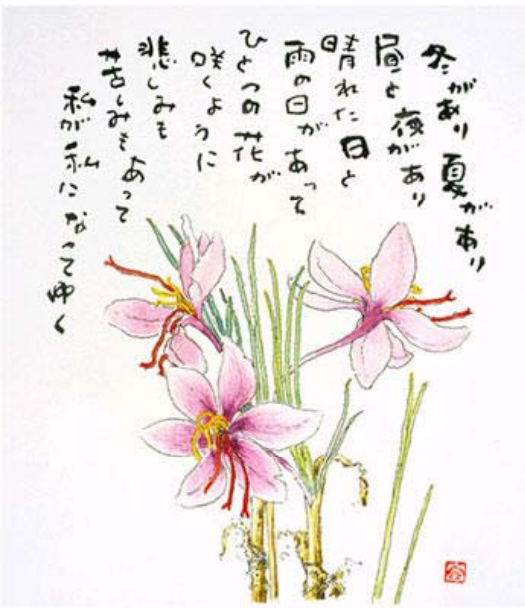 冬があり夏があり
昼と夜があり
晴れた日と
雨の日があって
ひとつの花が
咲くように
悲しみも
苦しみもあって
私が私になってゆく